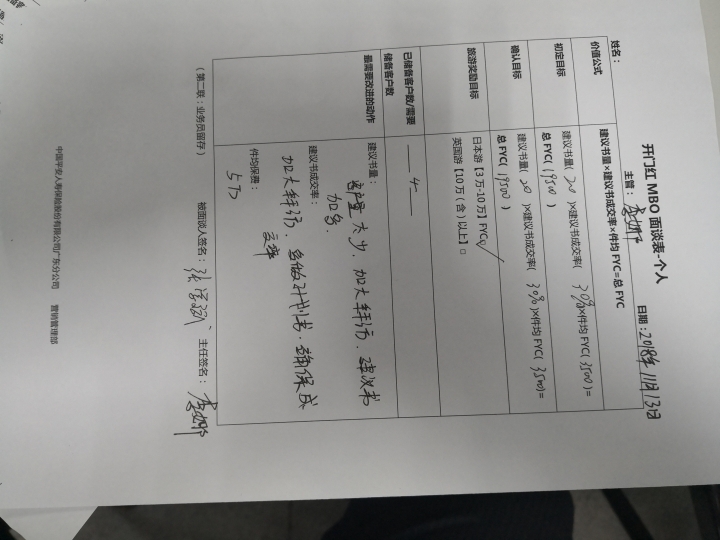 开门红 MBO 面谈表-个人
姓名： 主管： 日期：2018年11月13日
价值公式 建议书量×建议书成交率×件均 FYC=总 FYC
初定目标 建议书量( 20 )×建议书成交率( 30% )×件均 FYC( 3500 )=
总 FYC( 19500 )
确认目标 建议书量( 20 )×建议书成交率( 30% )×件均 FYC( 3500 )=
总 FYC( 19500 )
旅游奖励目标 日本游【3 万-10 万】FYC☑
英国游【10 万（含）以上】□
已储备客户数/需要
储备客户数 4
最需要改进的动作 建议书量：
客户量太少，加大拜访，建议书
加多。
建议书成交率：
加大拜访，多做计划书，确保成
交率
件均保费：
5万
（第二联：业务员留存） 被面谈人签名： 主任签名：
中国平安人寿保险股份有限公司广东分公司 营销管理部